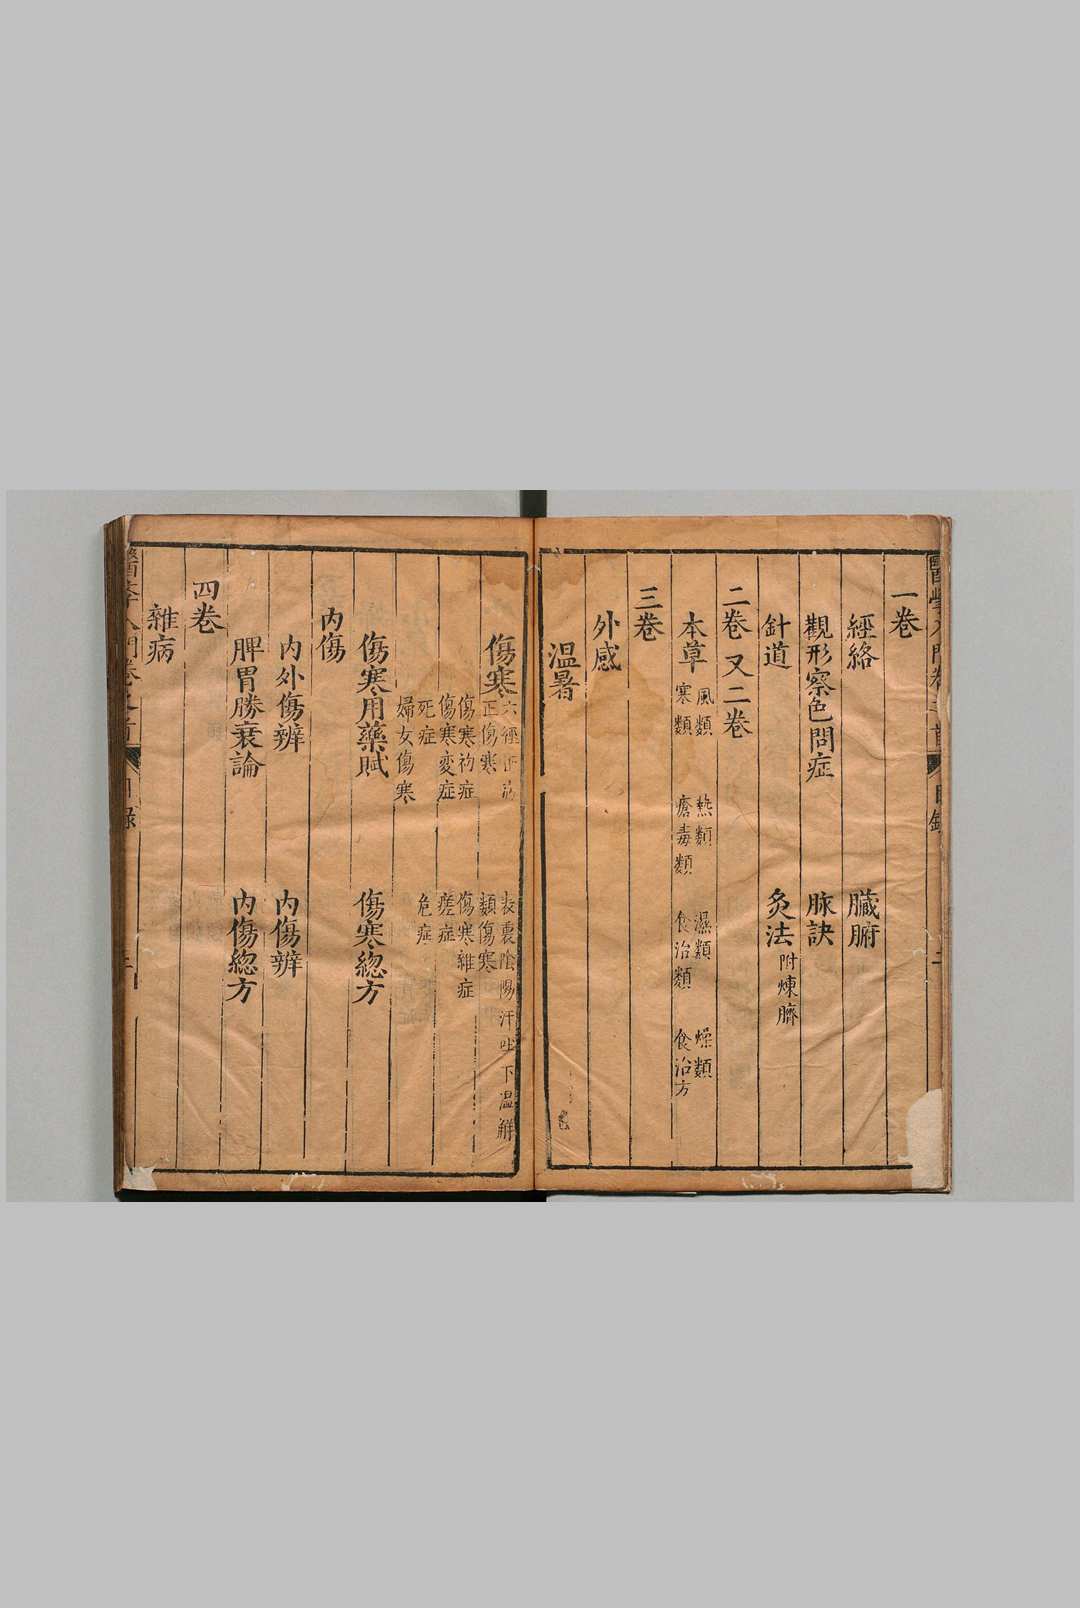 一卷
經絡　臟腑
觀形察色問症　脉訣
針道　灸法附煉臍
二卷 又二卷
本草　風類　熱類　濕類　燥類
寒類　瘡毒類　食治類　食治方
三卷
外感
温暑
傷寒　六經正病　表裏陰陽汗吐下温觧
正傷寒　類傷寒
傷寒初症　傷寒雜症
傷寒変症　瘥症
死症　危症
婦女傷寒
傷寒用藥賦　傷寒総方
内傷
内外傷辨　内傷辨
脾胃勝衰論　内傷総方
四卷
雜病